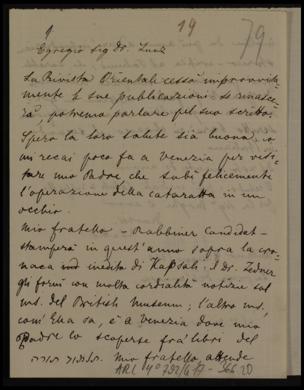 9
19
79
Egregio sig Dr. Lunz
La Rivista Orientale cessò improvvisa-
mente le sue pubblicazioni se rinasce-
rà, potremo parlare pel suo scritto.
Spero la loro salute sia buona, io
mi recai poco fa a Venezia per visi-
tare mio Padre che subì felicemente
l'operazione della cataratta in un
occhio.
Mio fratello - Rabbiner Candidat -
stamperà in quest'anno sopra la cro-
naca inedita di Kapsali. Il dr. Zedner
gli fornì con molta cordialità notizie sul
ms. del British Museum; l'altro ms,
com' Ella sa, è a Venezia dove mio
Padre lo scoperse fra' libri del
תלמוד תורה. Mio fratello attende
ARC 4° 792/G 17-366.20